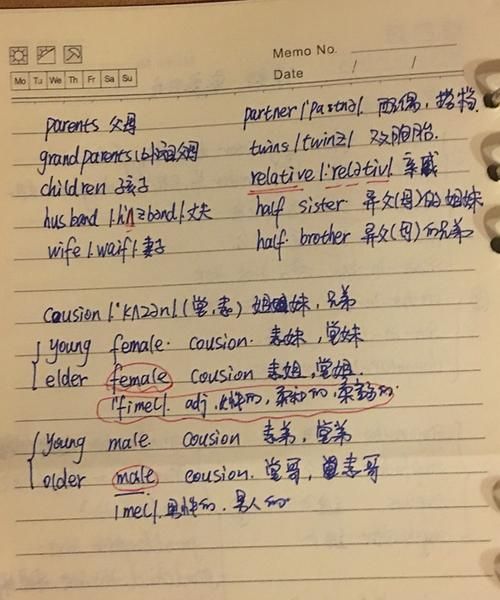 Memo No.
Mo Tu We Th Fr Sa Su
Date / /
parents 父母
grandparents (外)祖父母
children 孩子
husband /'hʌzbənd/ 丈夫
wife /waif/ 妻子
partner /'pɑ:tnə/ 配偶,搭档.
twins /twinz/ 双胞胎.
relative /'relətiv/ 亲戚
half sister 异父(母)的姐妹
half brother 异父(母)的兄弟
cousion /'kʌzən/ (堂,表) 姐妹,兄弟
young female cousion 表妹,堂妹
elder female cousion 表姐,堂姐.
/'fimel/. adj. 女性的,柔和的,
young male cousion 表弟,堂弟
older male cousion. 堂哥,表哥
/mel/ 男性的.男人的.